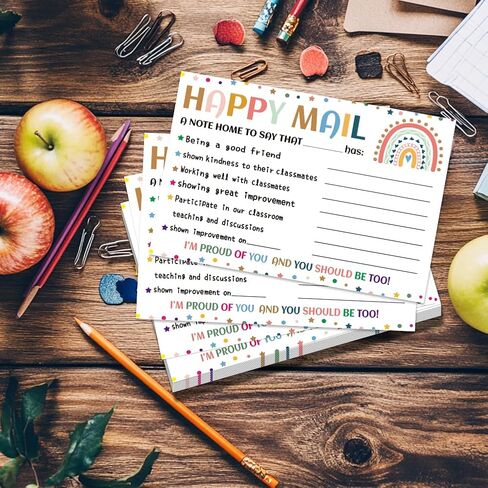 HAPPY MAIL
A NOTE HOME TO SAY THAT______ has:
Being a good friend
shown kindness to their classmates
Working well with classmates
showing great improvement
Participate in our classroom
teaching and discussions
shown improvement on______
I'M PROUD OF YOU AND YOU SHOULD BE TOO!
Participate
teaching and discussions
shown improvement on______
I'M PROUD OF YOU AND YOU SHOULD BE TOO!
shown improvement on
I'M PROUD OF YOU
I'M PROUD OF